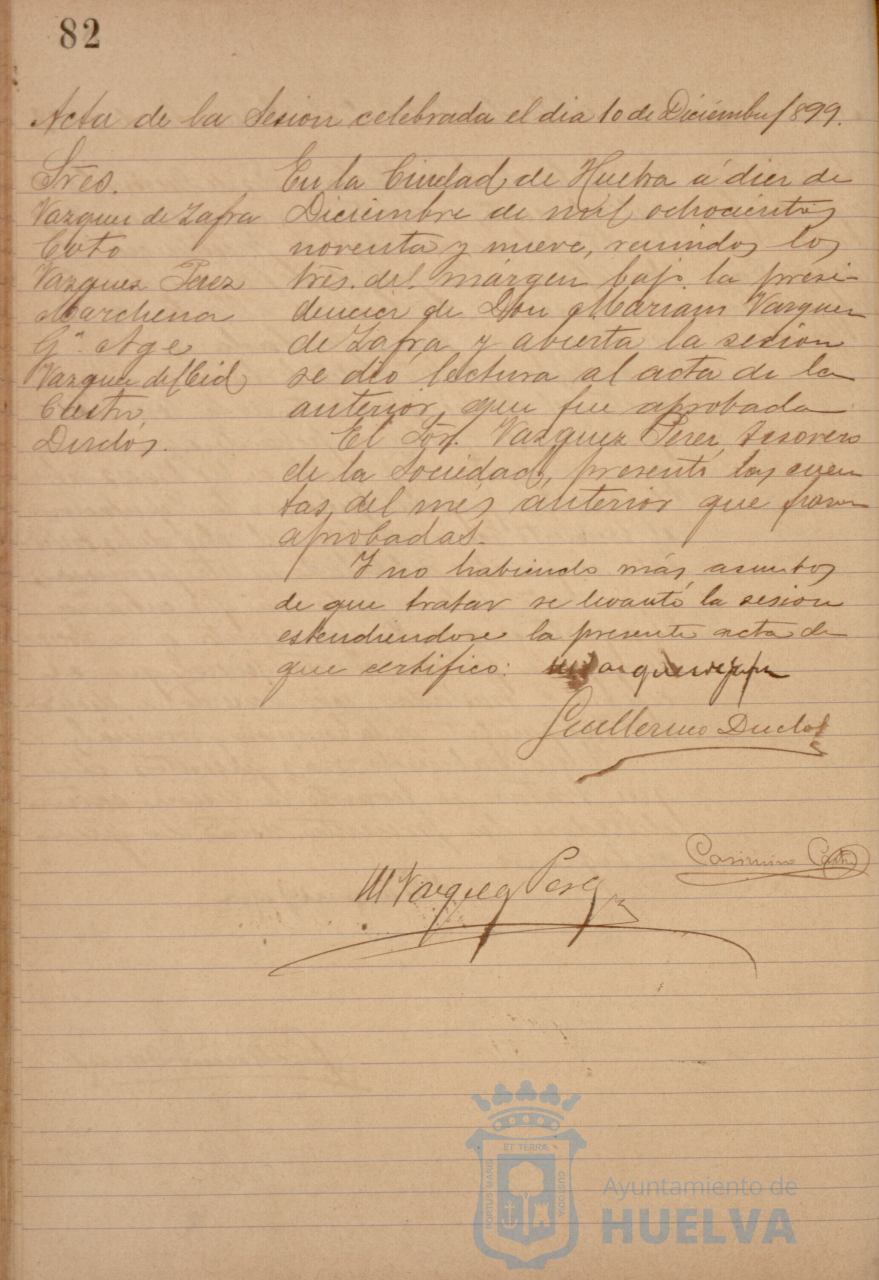 82
Acta de la Sesion celebrada el dia 10 de Diciembre/899.
Sres.
Vazquez de Zafra
Coto
Vazquez Perez
Marchena
Gª. Age
Vazquez del Cid
Castro
Duclós.
En la Ciudad de Huelva á diez de
Diciembre de mil ochocientos
noventa y nueve, reunidos los
Sres. del márgen bajo la presi-
dencia de Don Mariano Vazquez
de Zafra y abierta la sesion
se dió lectura al acta de la
anterior, que fue aprobada
El Sor. Vazquez Perez, tesorero
de la Sociedad, presentó las cuen
tas del mes anterior que fueron
aprobadas.
Y no habiendo más asuntos
de que tratar se levantó la sesion
estendiendose la presente acta de
que certifico: M Vazquez de Zafra
Guillermo Duclós
Casimiro Castro
M Vazquez Perez
ET TERRÆ
PORTUS MARIS
CUSTODIA
Ayuntamiento de
HUELVA